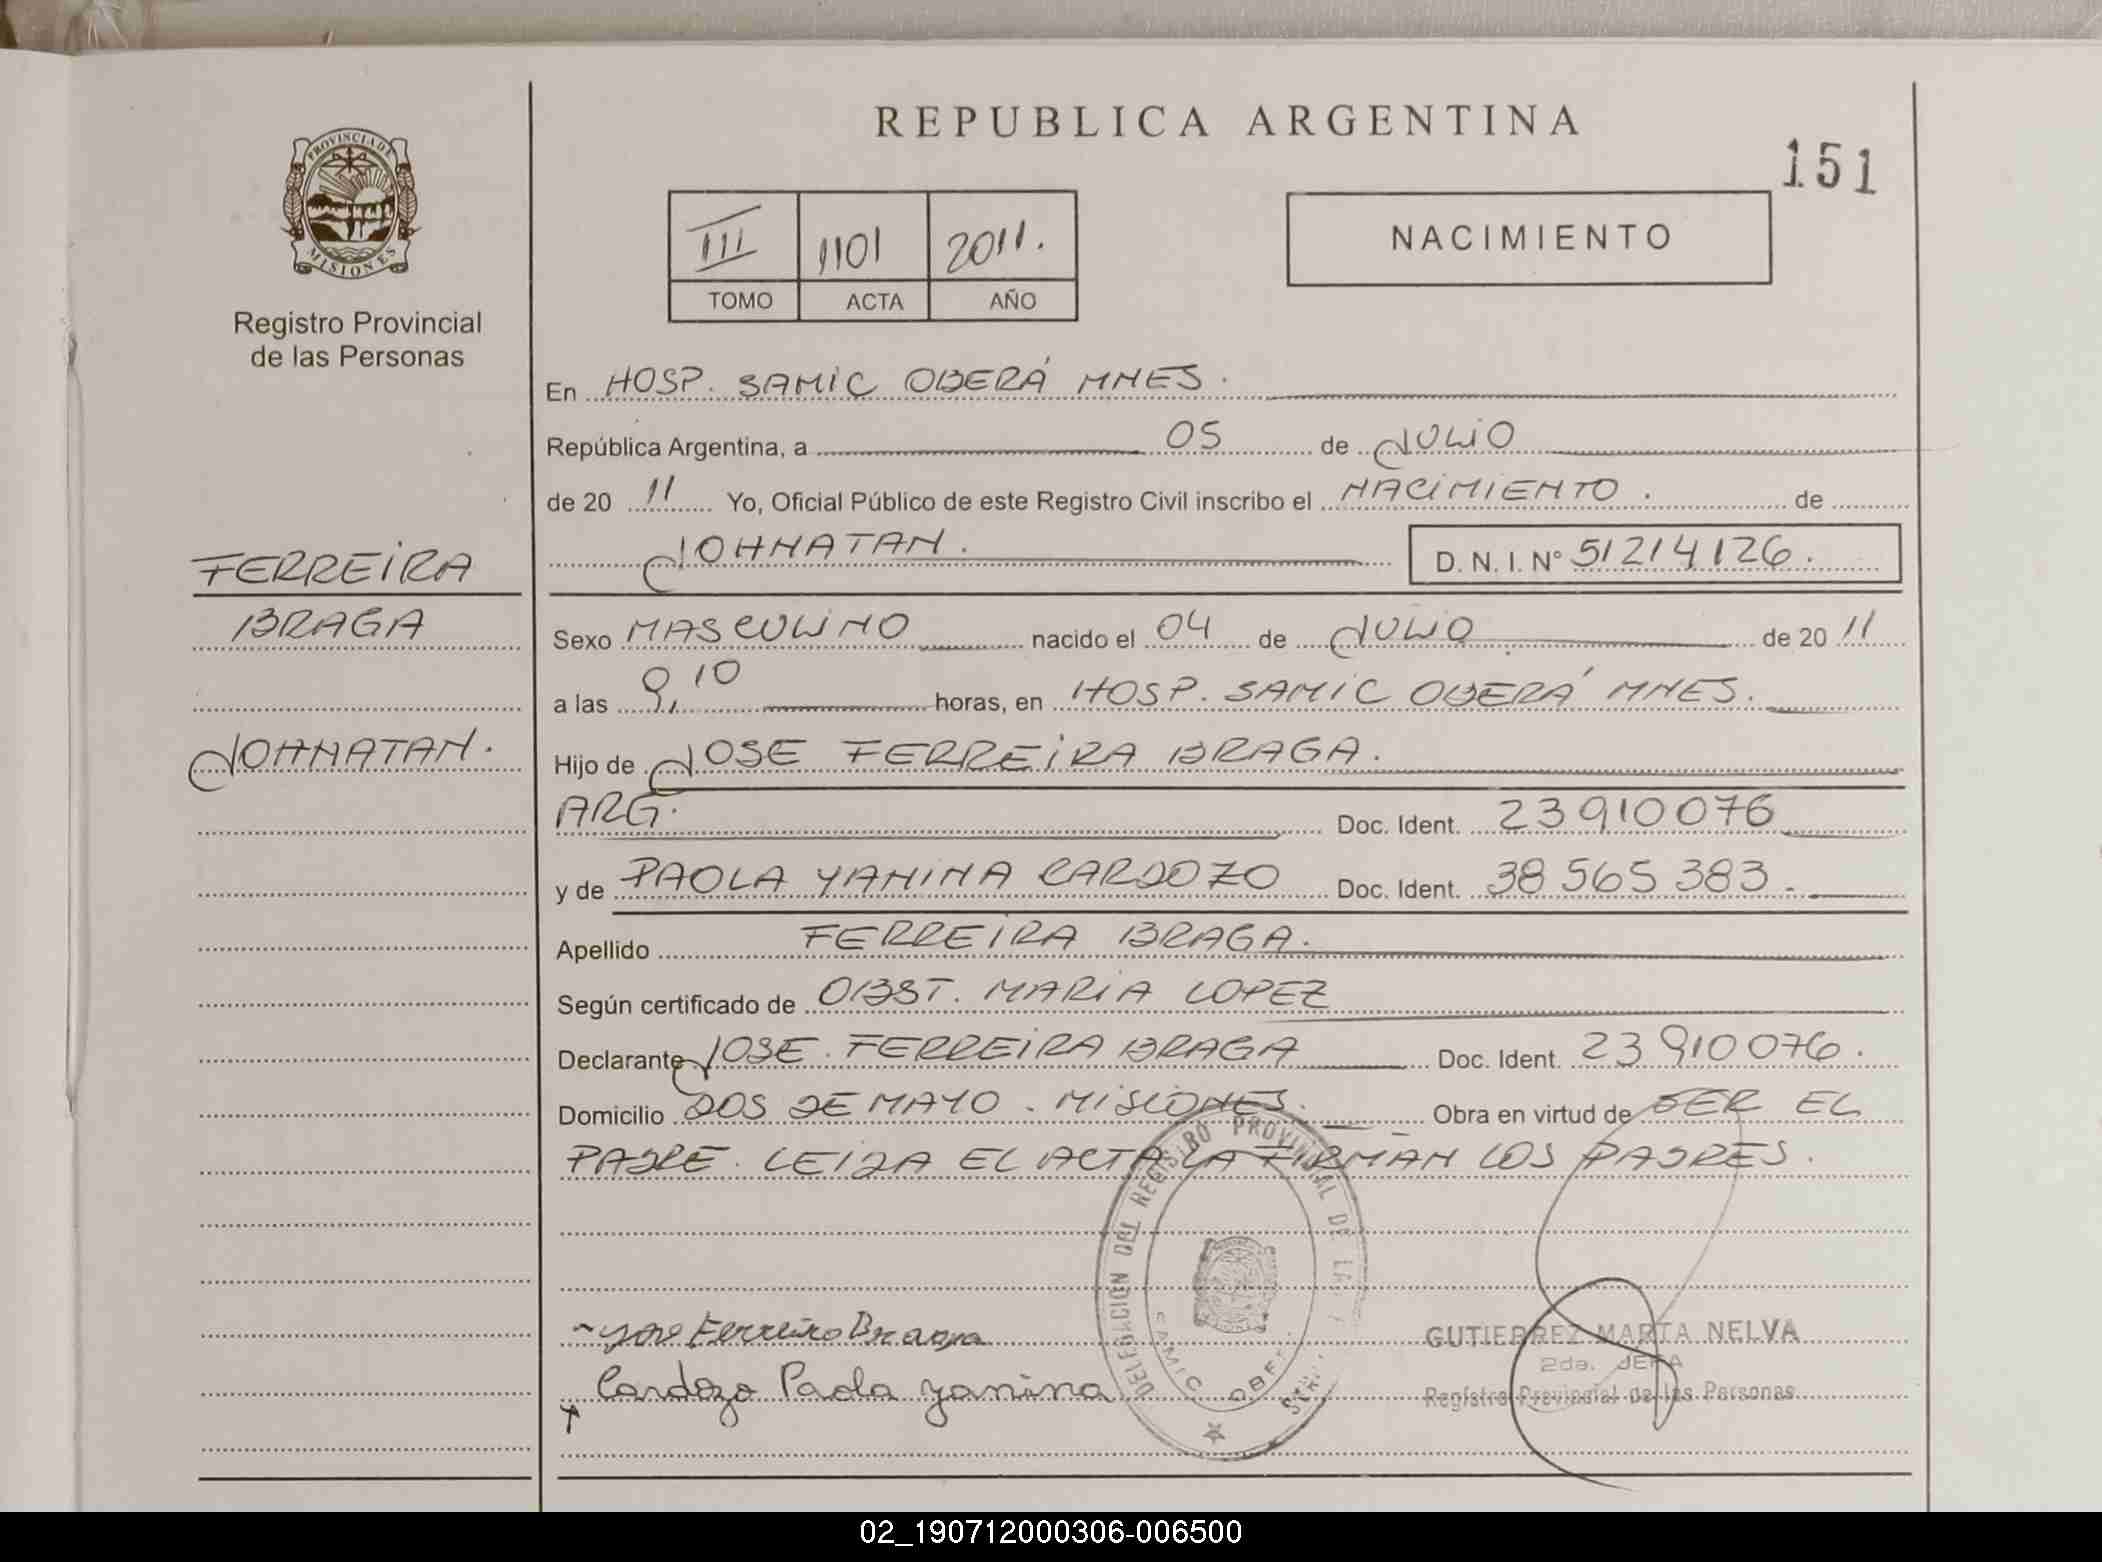 REPUBLICA ARGENTINA
151
PROVINCIA DE
MISIONES
Registro Provincial
de las Personas
III 1101 2011.
TOMO ACTA AÑO
NACIMIENTO
En HOSP. SAMIC OBERÁ MNES.
República Argentina, a 05 de JULIO
de 20 11 Yo, Oficial Público de este Registro Civil inscribo el NACIMIENTO. de
JOHNATAN. D. N. I. Nº 51214126.
FERREIRA
BRAGA
JOHNATAN.
Sexo MASCULINO nacido el 04 de JULIO de 20 11
a las 9,10 horas, en HOSP. SAMIC OBERÁ MNES.
Hijo de JOSE FERREIRA BRAGA.
ARG. Doc. Ident. 23910076
y de PAOLA YANINA CARDOZO Doc. Ident. 38565383.
Apellido FERREIRA BRAGA.
Según certificado de OBST. MARIA LOPEZ
Declarante JOSE FERREIRA BRAGA Doc. Ident. 23910076.
Domicilio DOS DE MAYO. MISIONES. Obra en virtud de SER EL
PADRE. LEIDA EL ACTA LA FIRMAN LOS PADRES.
DELEGACION DEL REGISTRO PROVINCIAL DE LA
SAMIC OBE
Jose Ferreira Braga
Cardozo Paola yanina
GUTIERREZ MARTA NELVA
2da. JEFA
Registro Provincial de las Personas
02_190712000306-006500